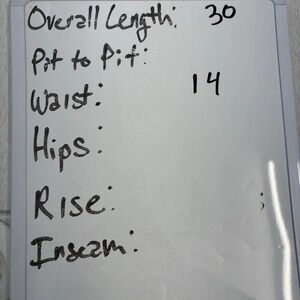 Overall Length: 30
Pit to Pit:
Waist: 14
Hips:
Rise:
Inseam: